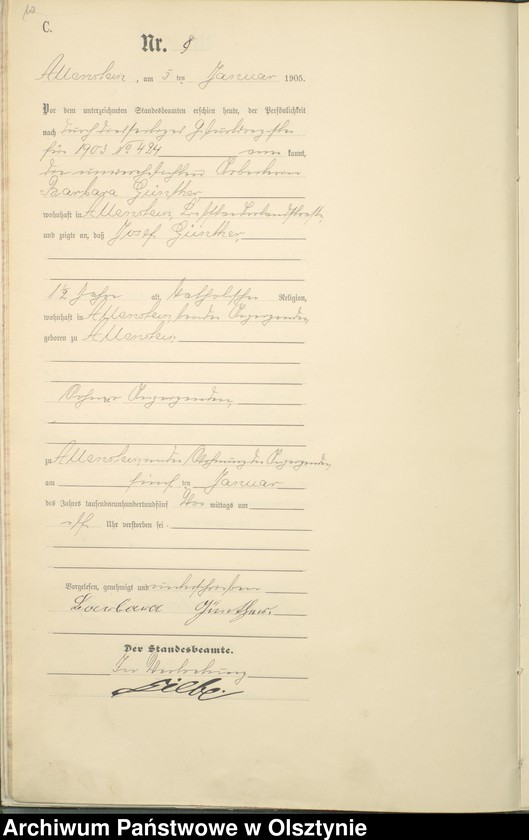 C.
Nr. 8
Allenstein, am 5 ten Januar 1905.
Vor dem unterzeichneten Standesbeamten erschien heute, der Persönlichkeit
nach durch
für 1903 No 424 kannt,
die unverehelichte Arbeiterin
Barbara Günther,
wohnhaft in Allenstein,
und zeigte an, daß Josef Günther,
1½ Jahre alt, katholischer Religion,
wohnhaft in Allenstein, bei der Anzeigenden
geboren zu Allenstein,
Sohn der Anzeigenden,
zu Allenstein, in der Wohnung der Anzeigenden,
am fünf ten Januar
des Jahres tausendneunhundertundfünf Vor mittags um
elf Uhr verstorben sei.
Vorgelesen, genehmigt und unterschrieben
Barbara Günther.
Der Standesbeamte.
In Vertretung
Archiwum Państwowe w Olsztynie